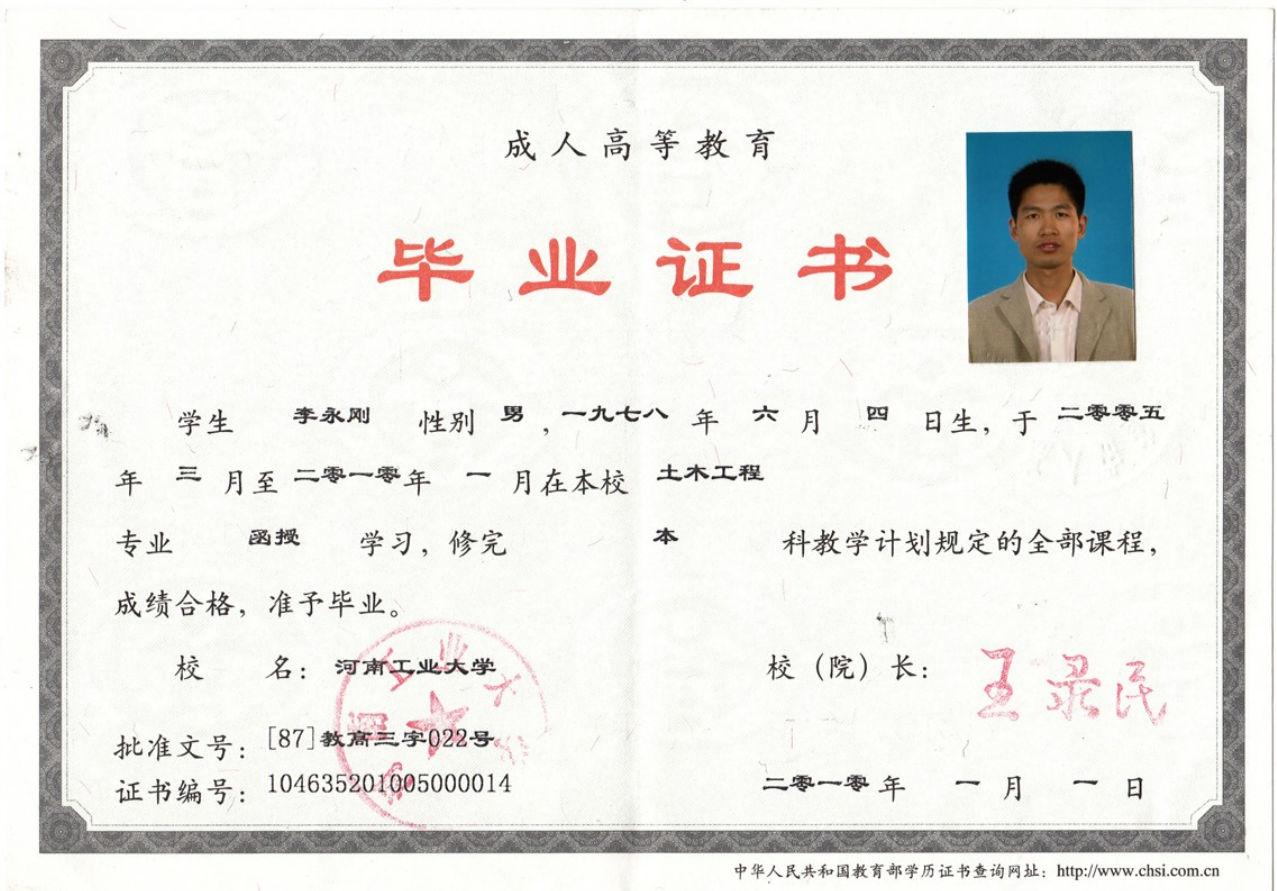 成人高等教育
毕业证书
学生 李永刚 性别 男 ,一九七八 年 六 月 四 日生, 于 二零零五
年 三 月至 二零一零 年 一 月在本校 土木工程
专业 函授 学习, 修完 本 科教学计划规定的全部课程,
成绩合格, 准予毕业。
校 名: 河南工业大学
校（院）长: 王录民
批准文号: [87]教高三字022号
证书编号: 104635201005000014
二零一零 年 一 月 一 日
中华人民共和国教育部学历证书查询网址: http://www.chsi.com.cn